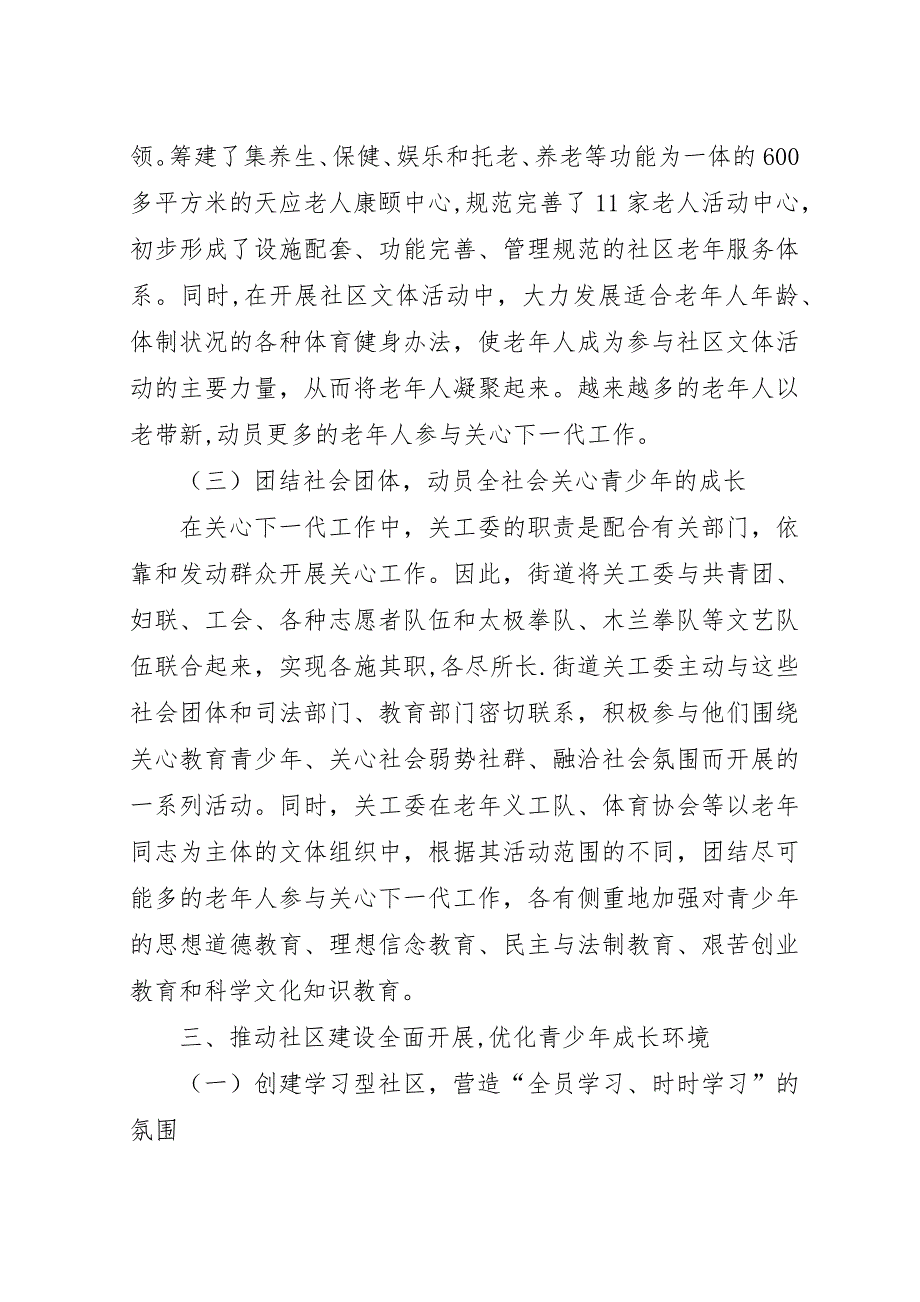 领。筹建了集养生、保健、娱乐和托老、养老等功能为一体的 600
多平方米的天应老人康颐中心,规范完善了 11 家老人活动中心，
初步形成了设施配套、功能完善、管理规范的社区老年服务体
系。同时,在开展社区文体活动中，大力发展适合老年人年龄、
体制状况的各种体育健身办法，使老年人成为参与社区文体活
动的主要力量，从而将老年人凝聚起来。越来越多的老年人以
老带新,动员更多的老年人参与关心下一代工作。
（三）团结社会团体，动员全社会关心青少年的成长
在关心下一代工作中，关工委的职责是配合有关部门，依
靠和发动群众开展关心工作。因此，街道将关工委与共青团、
妇联、工会、各种志愿者队伍和太极拳队、木兰拳队等文艺队
伍联合起来，实现各施其职,各尽所长.街道关工委主动与这些
社会团体和司法部门、教育部门密切联系，积极参与他们围绕
关心教育青少年、关心社会弱势社群、融洽社会氛围而开展的
一系列活动。同时，关工委在老年义工队、体育协会等以老年
同志为主体的文体组织中，根据其活动范围的不同，团结尽可
能多的老年人参与关心下一代工作，各有侧重地加强对青少年
的思想道德教育、理想信念教育、民主与法制教育、艰苦创业
教育和科学文化知识教育。
三、推动社区建设全面开展,优化青少年成长环境
（一）创建学习型社区，营造“全员学习、时时学习”的
氛围